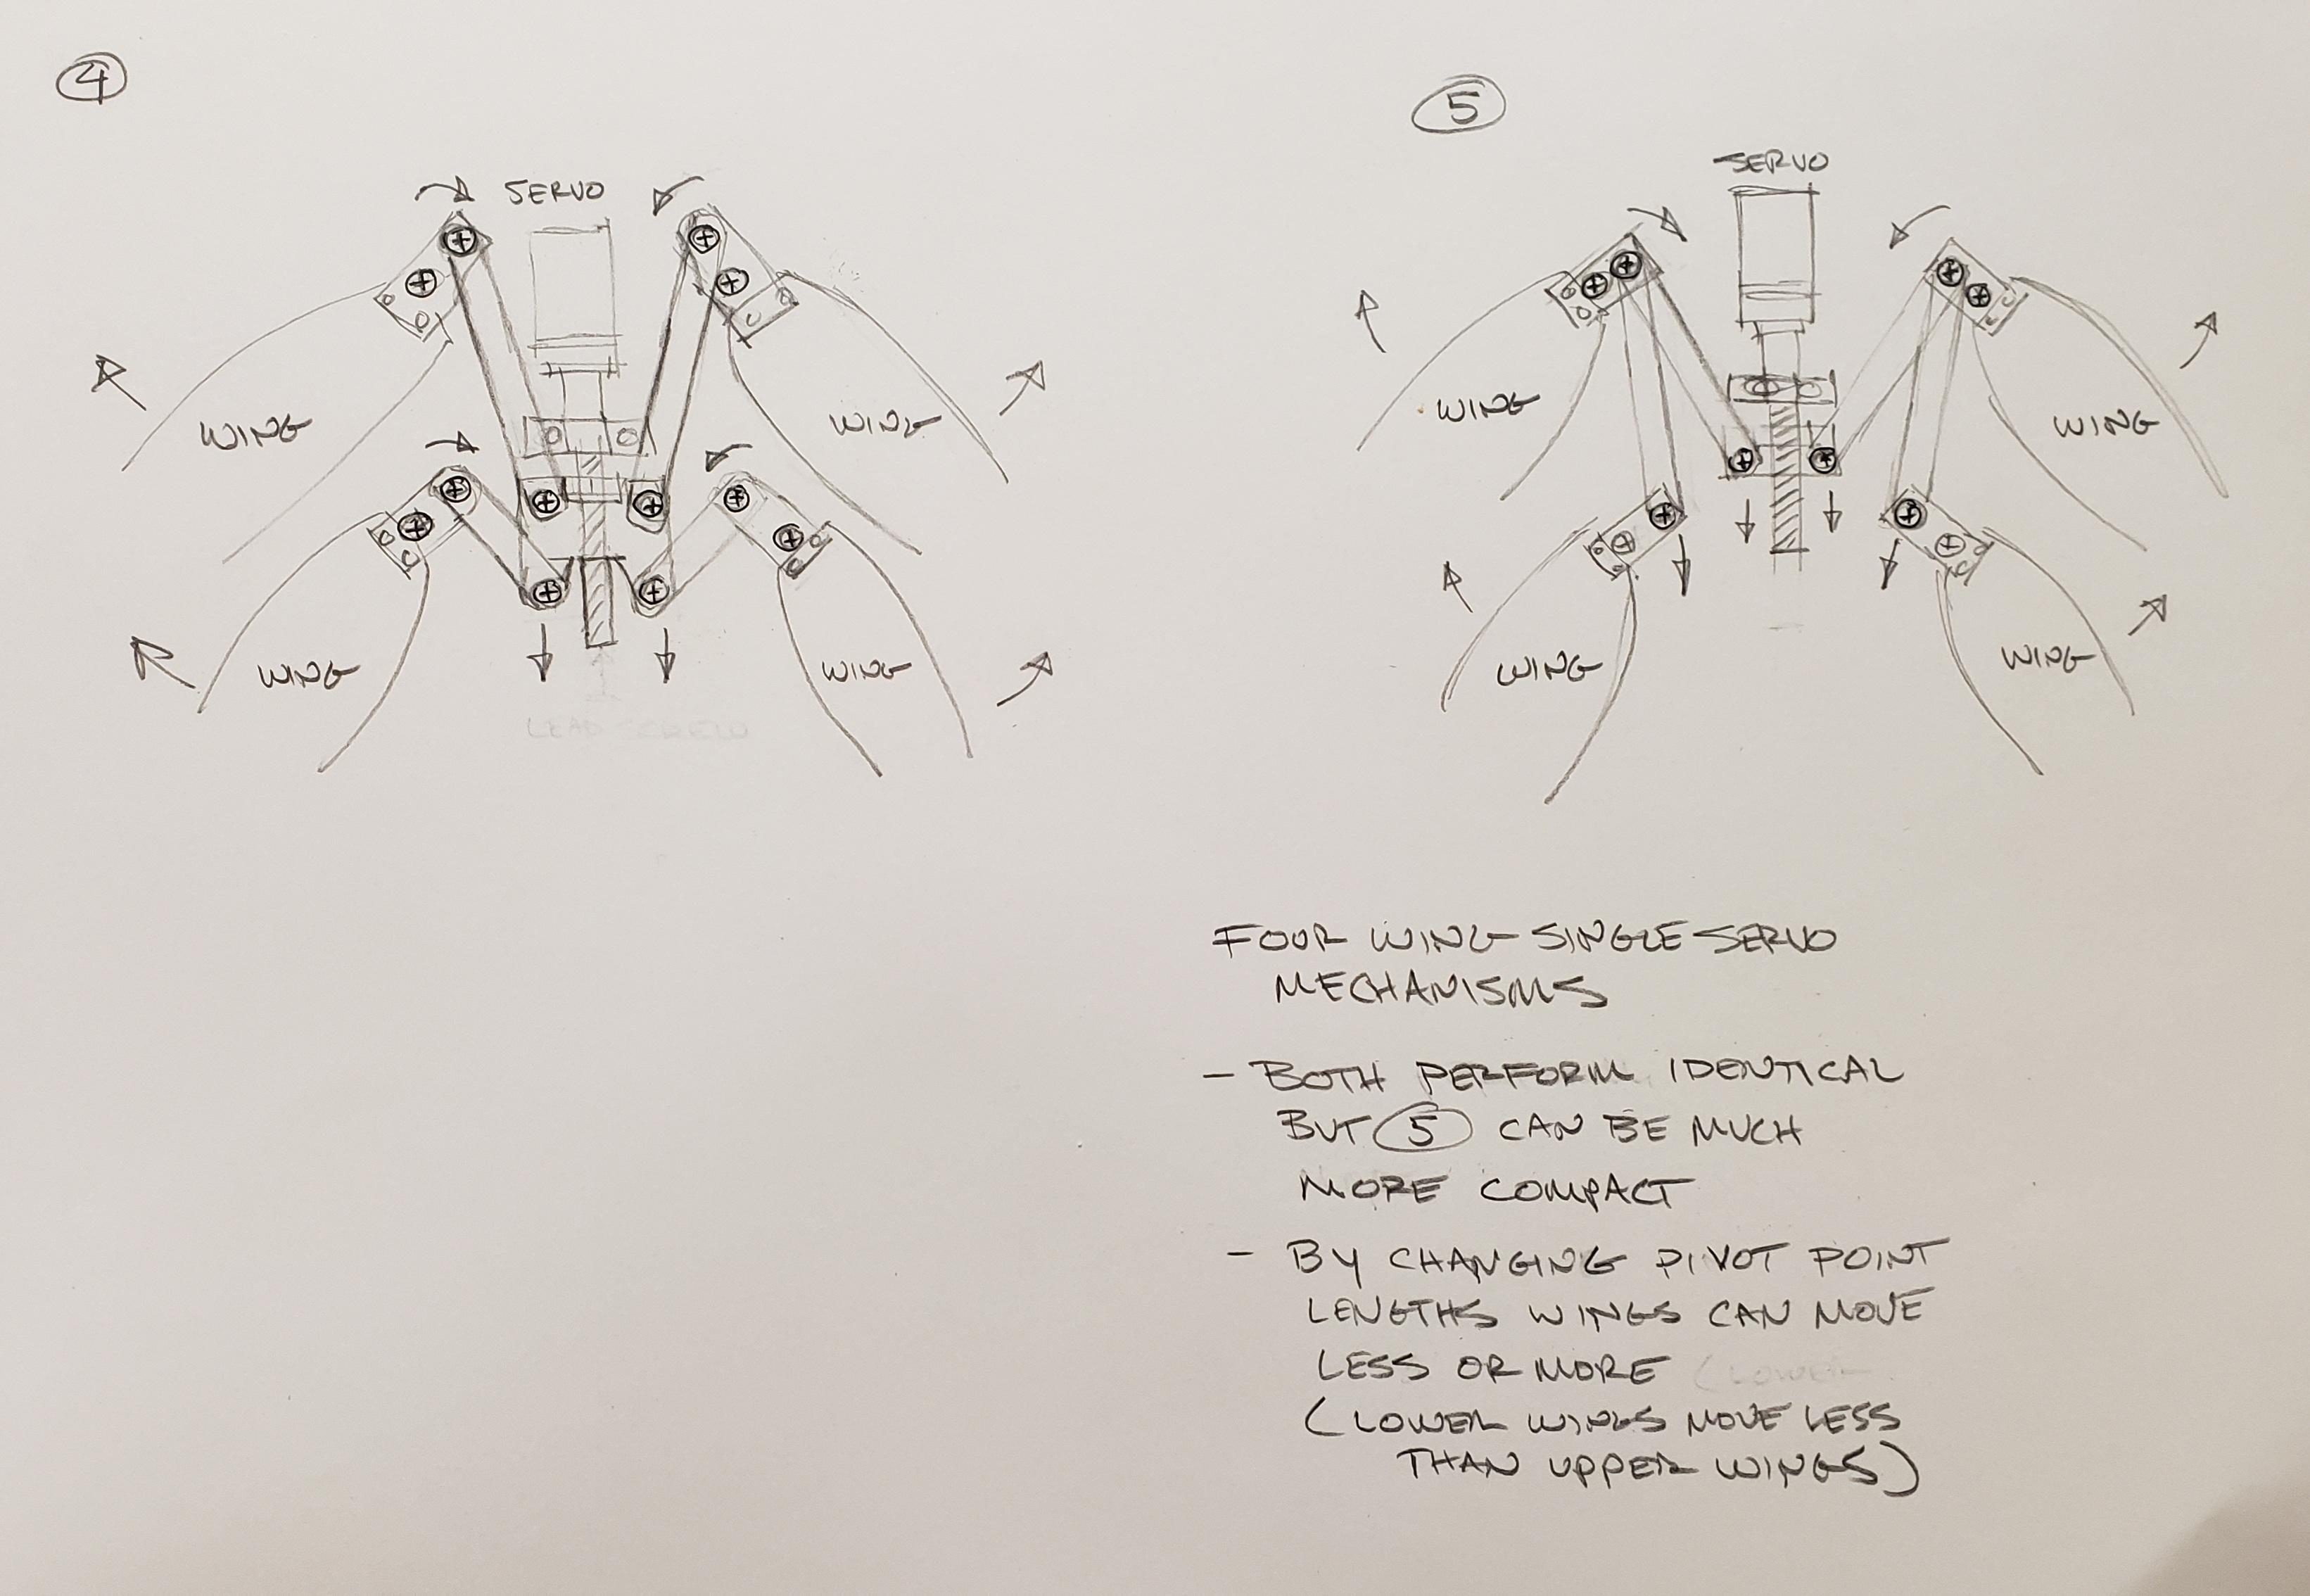 4
SERVO
WING
WING
WING
WING
LEAD SCREW
5
SERVO
WING
WING
WING
WING
FOUR WING SINGLE SERVO
MECHANISMS
- BOTH PERFORM IDENTICAL
BUT 5 CAN BE MUCH
MORE COMPACT
- BY CHANGING PIVOT POINT
LENGTHS WINGS CAN MOVE
LESS OR MORE (LOWER
(LOWER WINGS MOVE LESS
THAN UPPER WINGS)